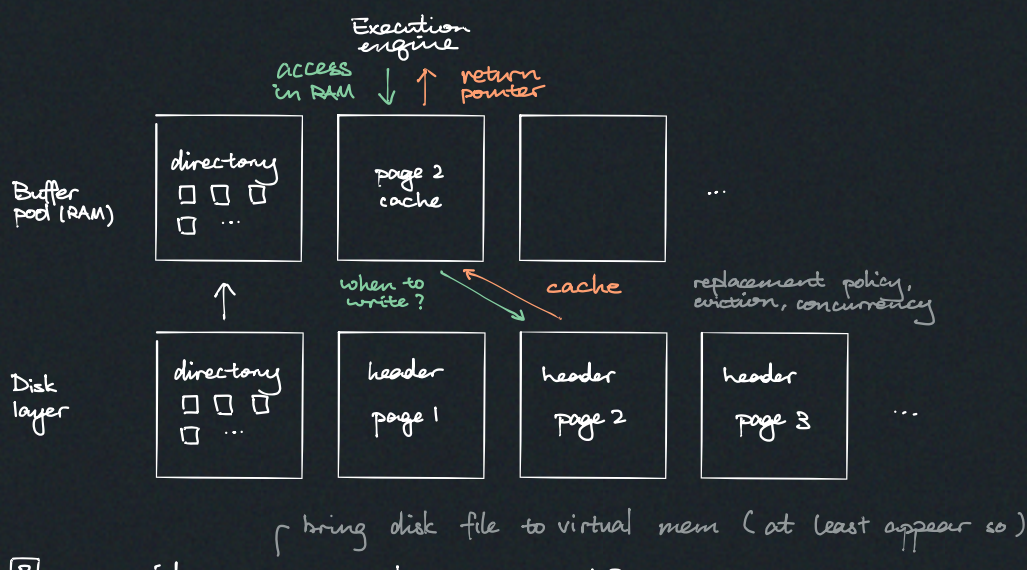 Execution
engine
access
in RAM
return
pointer
Buffer
pool (RAM)
directory
...
page 2
cache
...
when to
write?
cache
replacement policy,
eviction, concurrency
Disk
layer
directory
...
header
page 1
header
page 2
header
page 3
...
bring disk file to virtual mem (at least appear so)